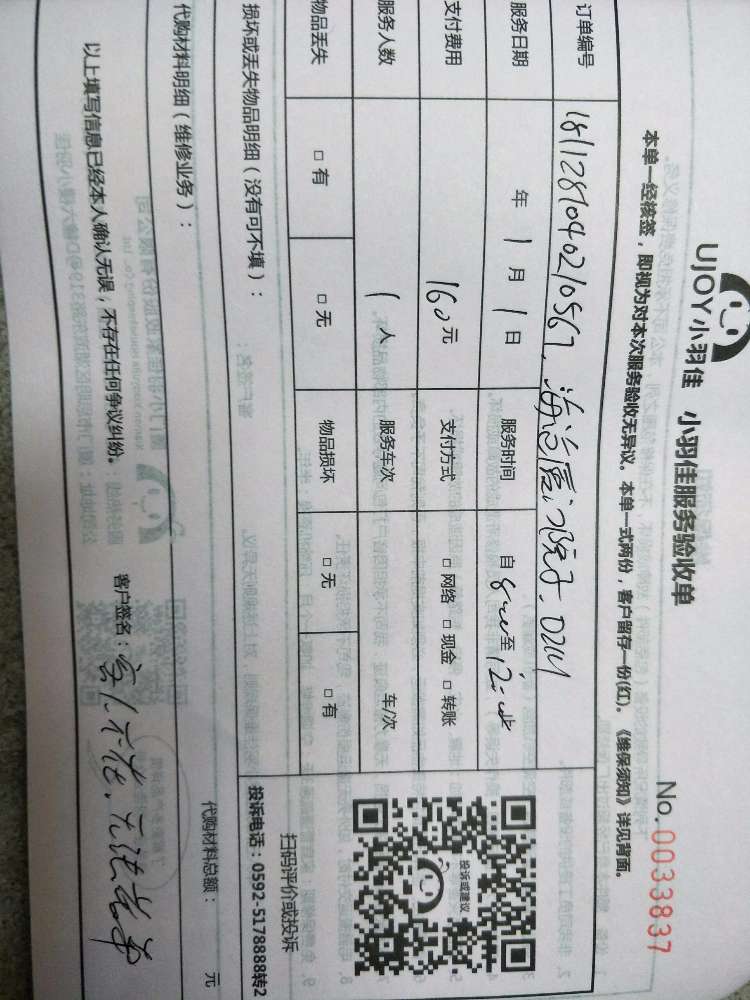 UJOY小羽佳 小羽佳服务验收单
No.0033837
本单一经核签，即视为对本次服务验收无异议。本单一式两份，客户留存一份(红)。《维保须知》详见背面。
订单编号 18112870402/0567
服务日期 年 1 月 1 日 服务时间 自 8:00 至 12:00
支付费用 160 元 支付方式 □ 网络 □ 现金 □ 转账
服务人数 1 人 服务车次 车/次
物品丢失 □ 有 □ 无 物品损坏 □ 无 □ 有
投诉或建议
扫码评价或投诉
投诉电话：0592-5178888转2
损坏或丢失物品明细（没有可不填）：
代购材料明细（维修业务）： 代购材料总额： 元
以上填写信息已经本人确认无误，不存在任何争议纠纷。 客户签名：客人不在，无法签单